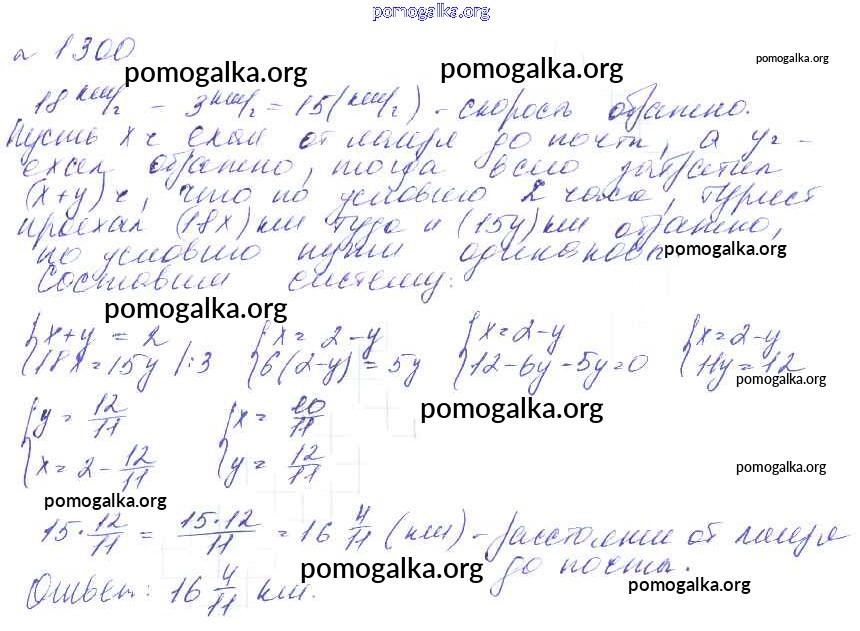 pomogalka.org
№ 1300
pomogalka.org pomogalka.org pomogalka.org
18 км/г - 3 км/г = 15 (км/г) - скорость обратно.
Пусть х ч ехал от лагеря до почты, а у ч -
ехал обратно, тогда всего затратил
(x+y) ч, что по условию 2 часа, турист
проехал (18x) км туда и (15y) км обратно,
по условию пути одинаковы.
pomogalka.org
Составим систему:
pomogalka.org
{x+y = 2 {x = 2-y {x = 2-y {x = 2-y
{18x = 15y |:3 {6(2-y) = 5y {12-6y-5y=0 {11y = 12
pomogalka.org
{y = 12/11 {x = 10/11
pomogalka.org
{x = 2 - 12/11 {y = 12/11
pomogalka.org
pomogalka.org
15·12/11 = 15·12/11 = 16 4/11 (км) - расстояние от лагеря
до почты.
pomogalka.org
Ответ: 16 4/11 км.
pomogalka.org